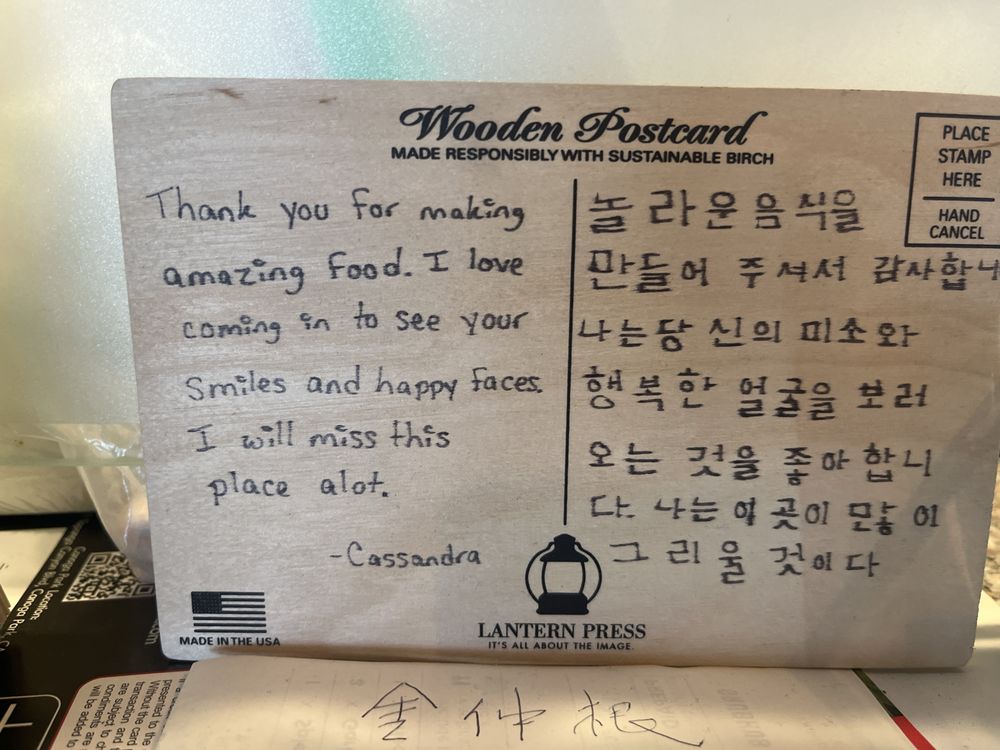 Wooden Postcard
MADE RESPONSIBLY WITH SUSTAINABLE BIRCH
PLACE
STAMP
HERE
HAND
CANCEL
Thank you for making
amazing food. I love
coming in to see your
smiles and happy faces.
I will miss this
place alot.
-Cassandra
놀라운음식을
만들어 주셔서 감사합니
나는당신의 미소와
행복한 얼굴을 보러
오는 것을 좋아합니
다. 나는이 곳이 많이
그리울 것이다
MADE IN THE USA
LANTERN PRESS
IT'S ALL ABOUT THE IMAGE.
Canoga Park Location:
金仲根